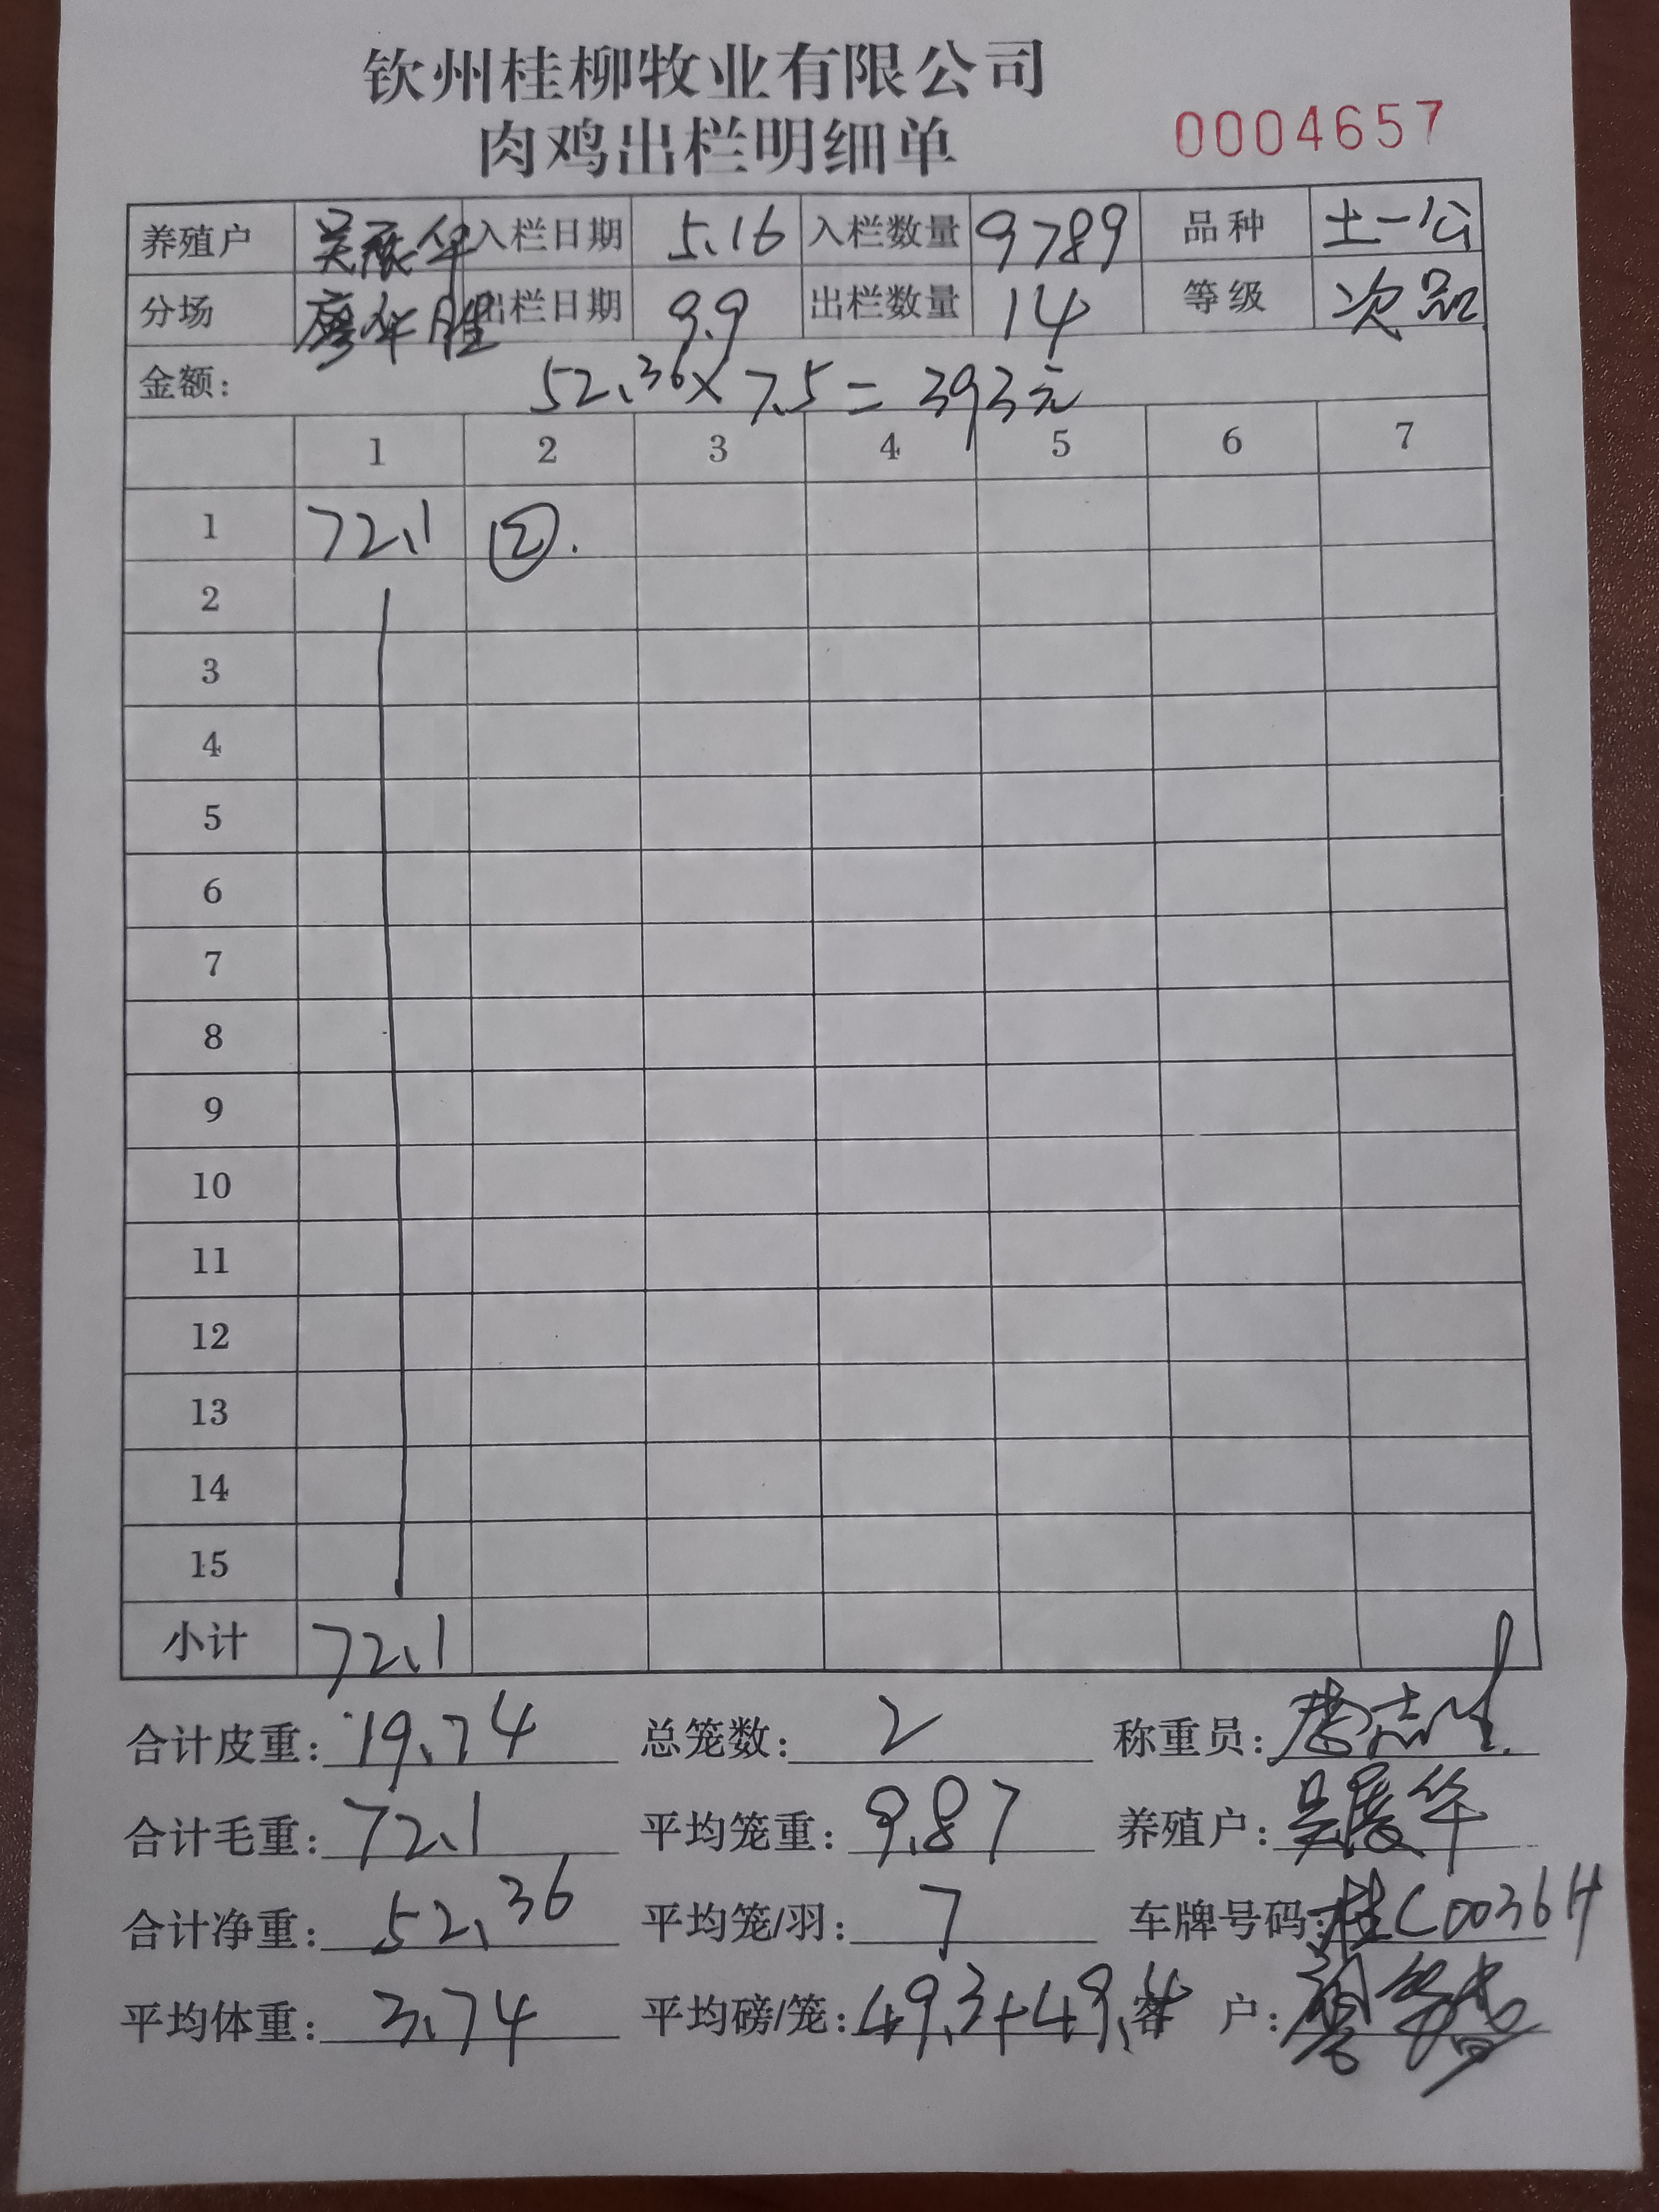 钦州桂柳牧业有限公司
肉鸡出栏明细单 0004657
养殖户 吴展华 入栏日期 5.16 入栏数量 9789 品种 土一公
分场 廖华胜 出栏日期 9.9 出栏数量 14 等级 次品
金额: 52.36×7.5=393元
1 2 3 4 5 6 7
1 72.1 ②.
2
3
4
5
6
7
8
9
10
11
12
13
14
15
小计 72.1
合计皮重: 19.74 总笼数: 2 称重员:
合计毛重: 72.1 平均笼重: 9.87 养殖户: 吴展华
合计净重: 52.36 平均笼/羽: 7 车牌号码: 桂C0036H
平均体重: 3.74 平均磅/笼: 49.3+49.4 客户: